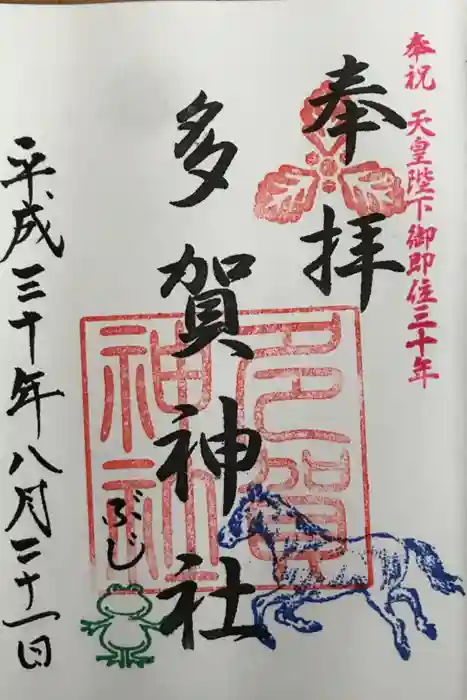 奉祝 天皇陛下御即位三十年
奉拝
多賀神社
多賀神社
ぶじ
平成三十年八月二十一日